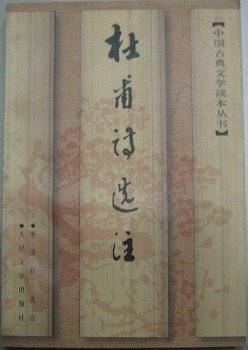 【中国古典文学读本丛书】
杜甫诗选注
●萧涤非 选注
●人民文学出版社